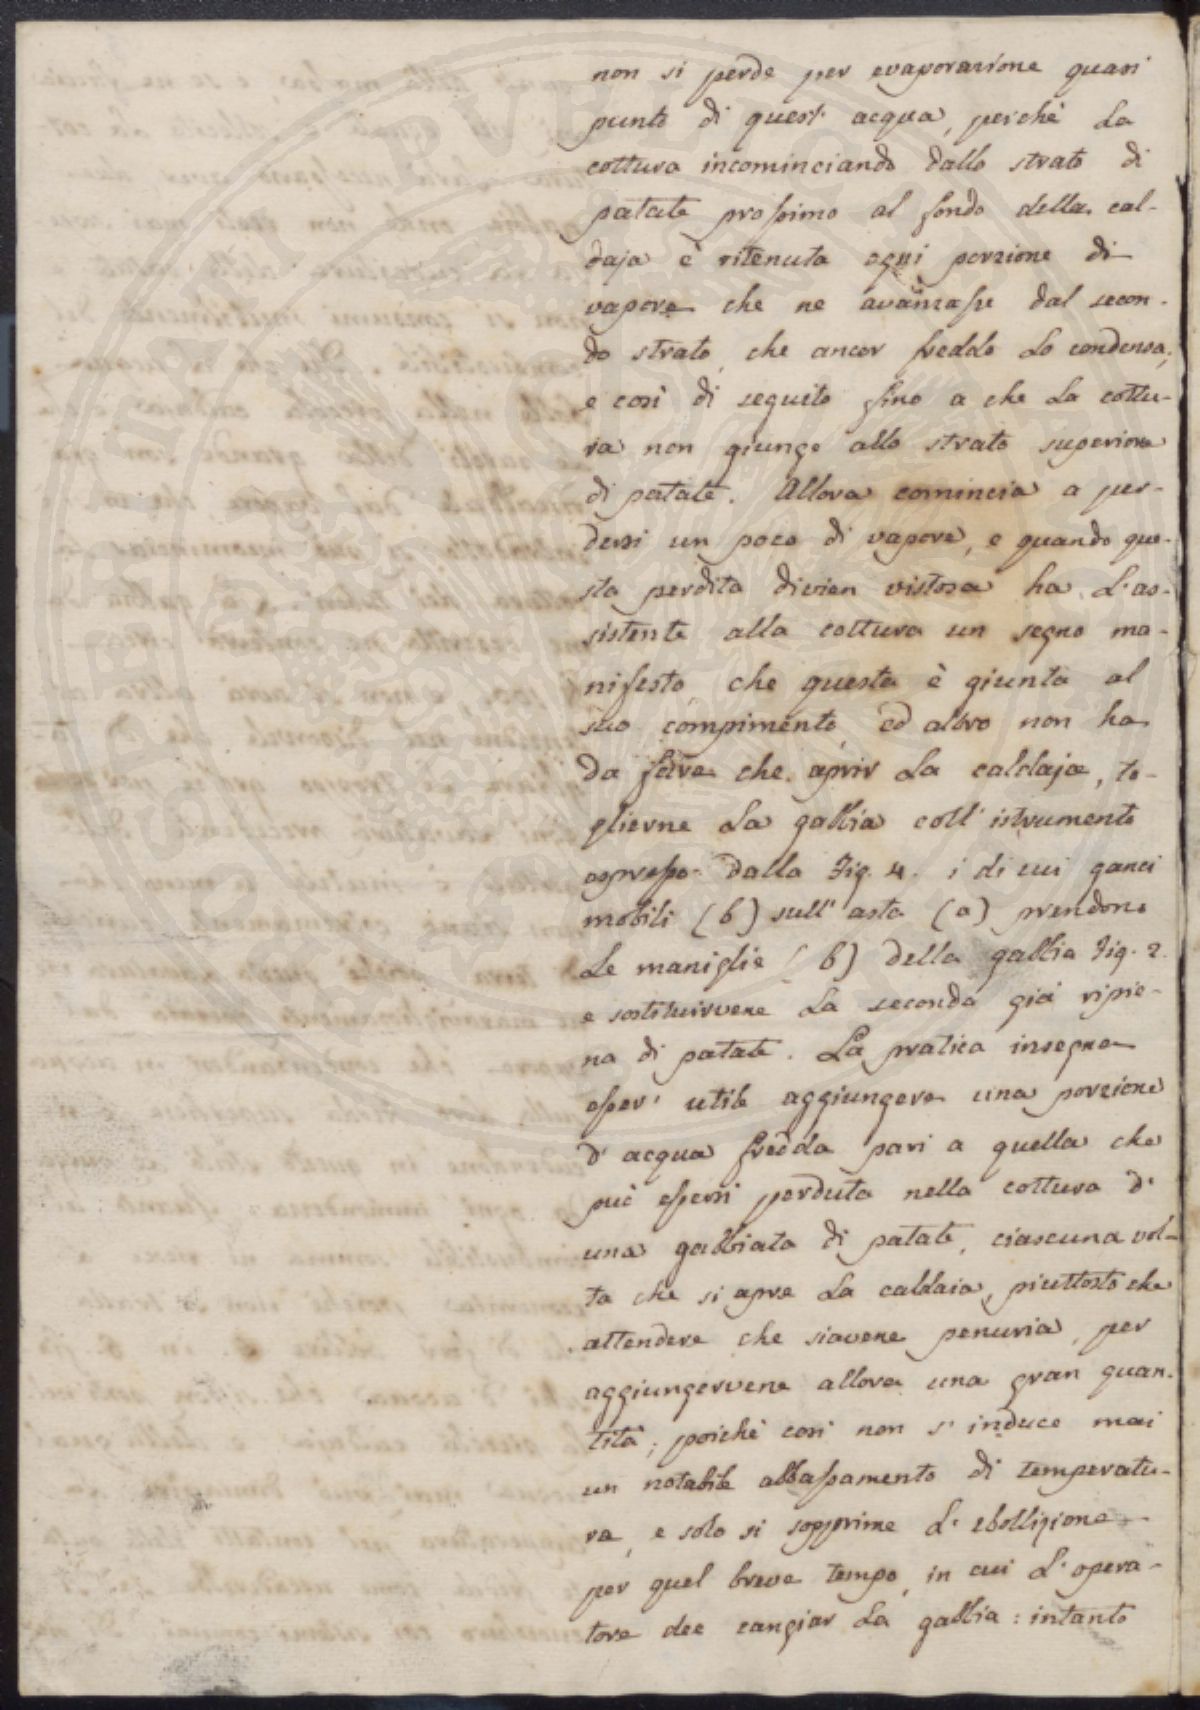 non si perde per evaporazione quasi
punto di quest' acqua, perchè la
cottura incominciando dallo strato di
patate prossimo al fondo della cal-
daja è ritenuta ogni porzione di
vapore che ne avanzasse dal secon-
do strato, che ancor freddo lo condensa,
e così di seguito fino a che la cottu-
ra non giunge allo strato superiore
di patate. Allora comincia a per-
dersi un poco di vapore, e quando que-
sta perdita divien vistosa ha l'as-
sistente alla cottura un segno ma-
nifesto, che questa è giunta al
suo compimento, ed altro non ha
da fare che aprir la caldaja, to-
glierne la gabbia coll' istrumento
espresso dalla Fig. 4. i di cui ganci
mobili (b) sull' asta (a) prendono
le maniglie (b) della gabbia Fig. 2.
e sostituirvene la seconda già ripie-
na di patate. La pratica insegna
esser' utile aggiungere una porzione
d' acqua fredda pari a quella che
può essersi perduta nella cottura d'
una gabbiata di patate, ciascuna vol-
ta che si apre la caldaia, piuttosto che
attendere che siavene penuria, per
aggiungervene allora una gran quan-
tità; poichè così non s' induce mai
un notabile abbassamento di temperatu-
ra, e solo si sopprime l' ebollizione
per quel breve tempo, in cui l' opera-
tore dee cangiar la gabbia: intanto